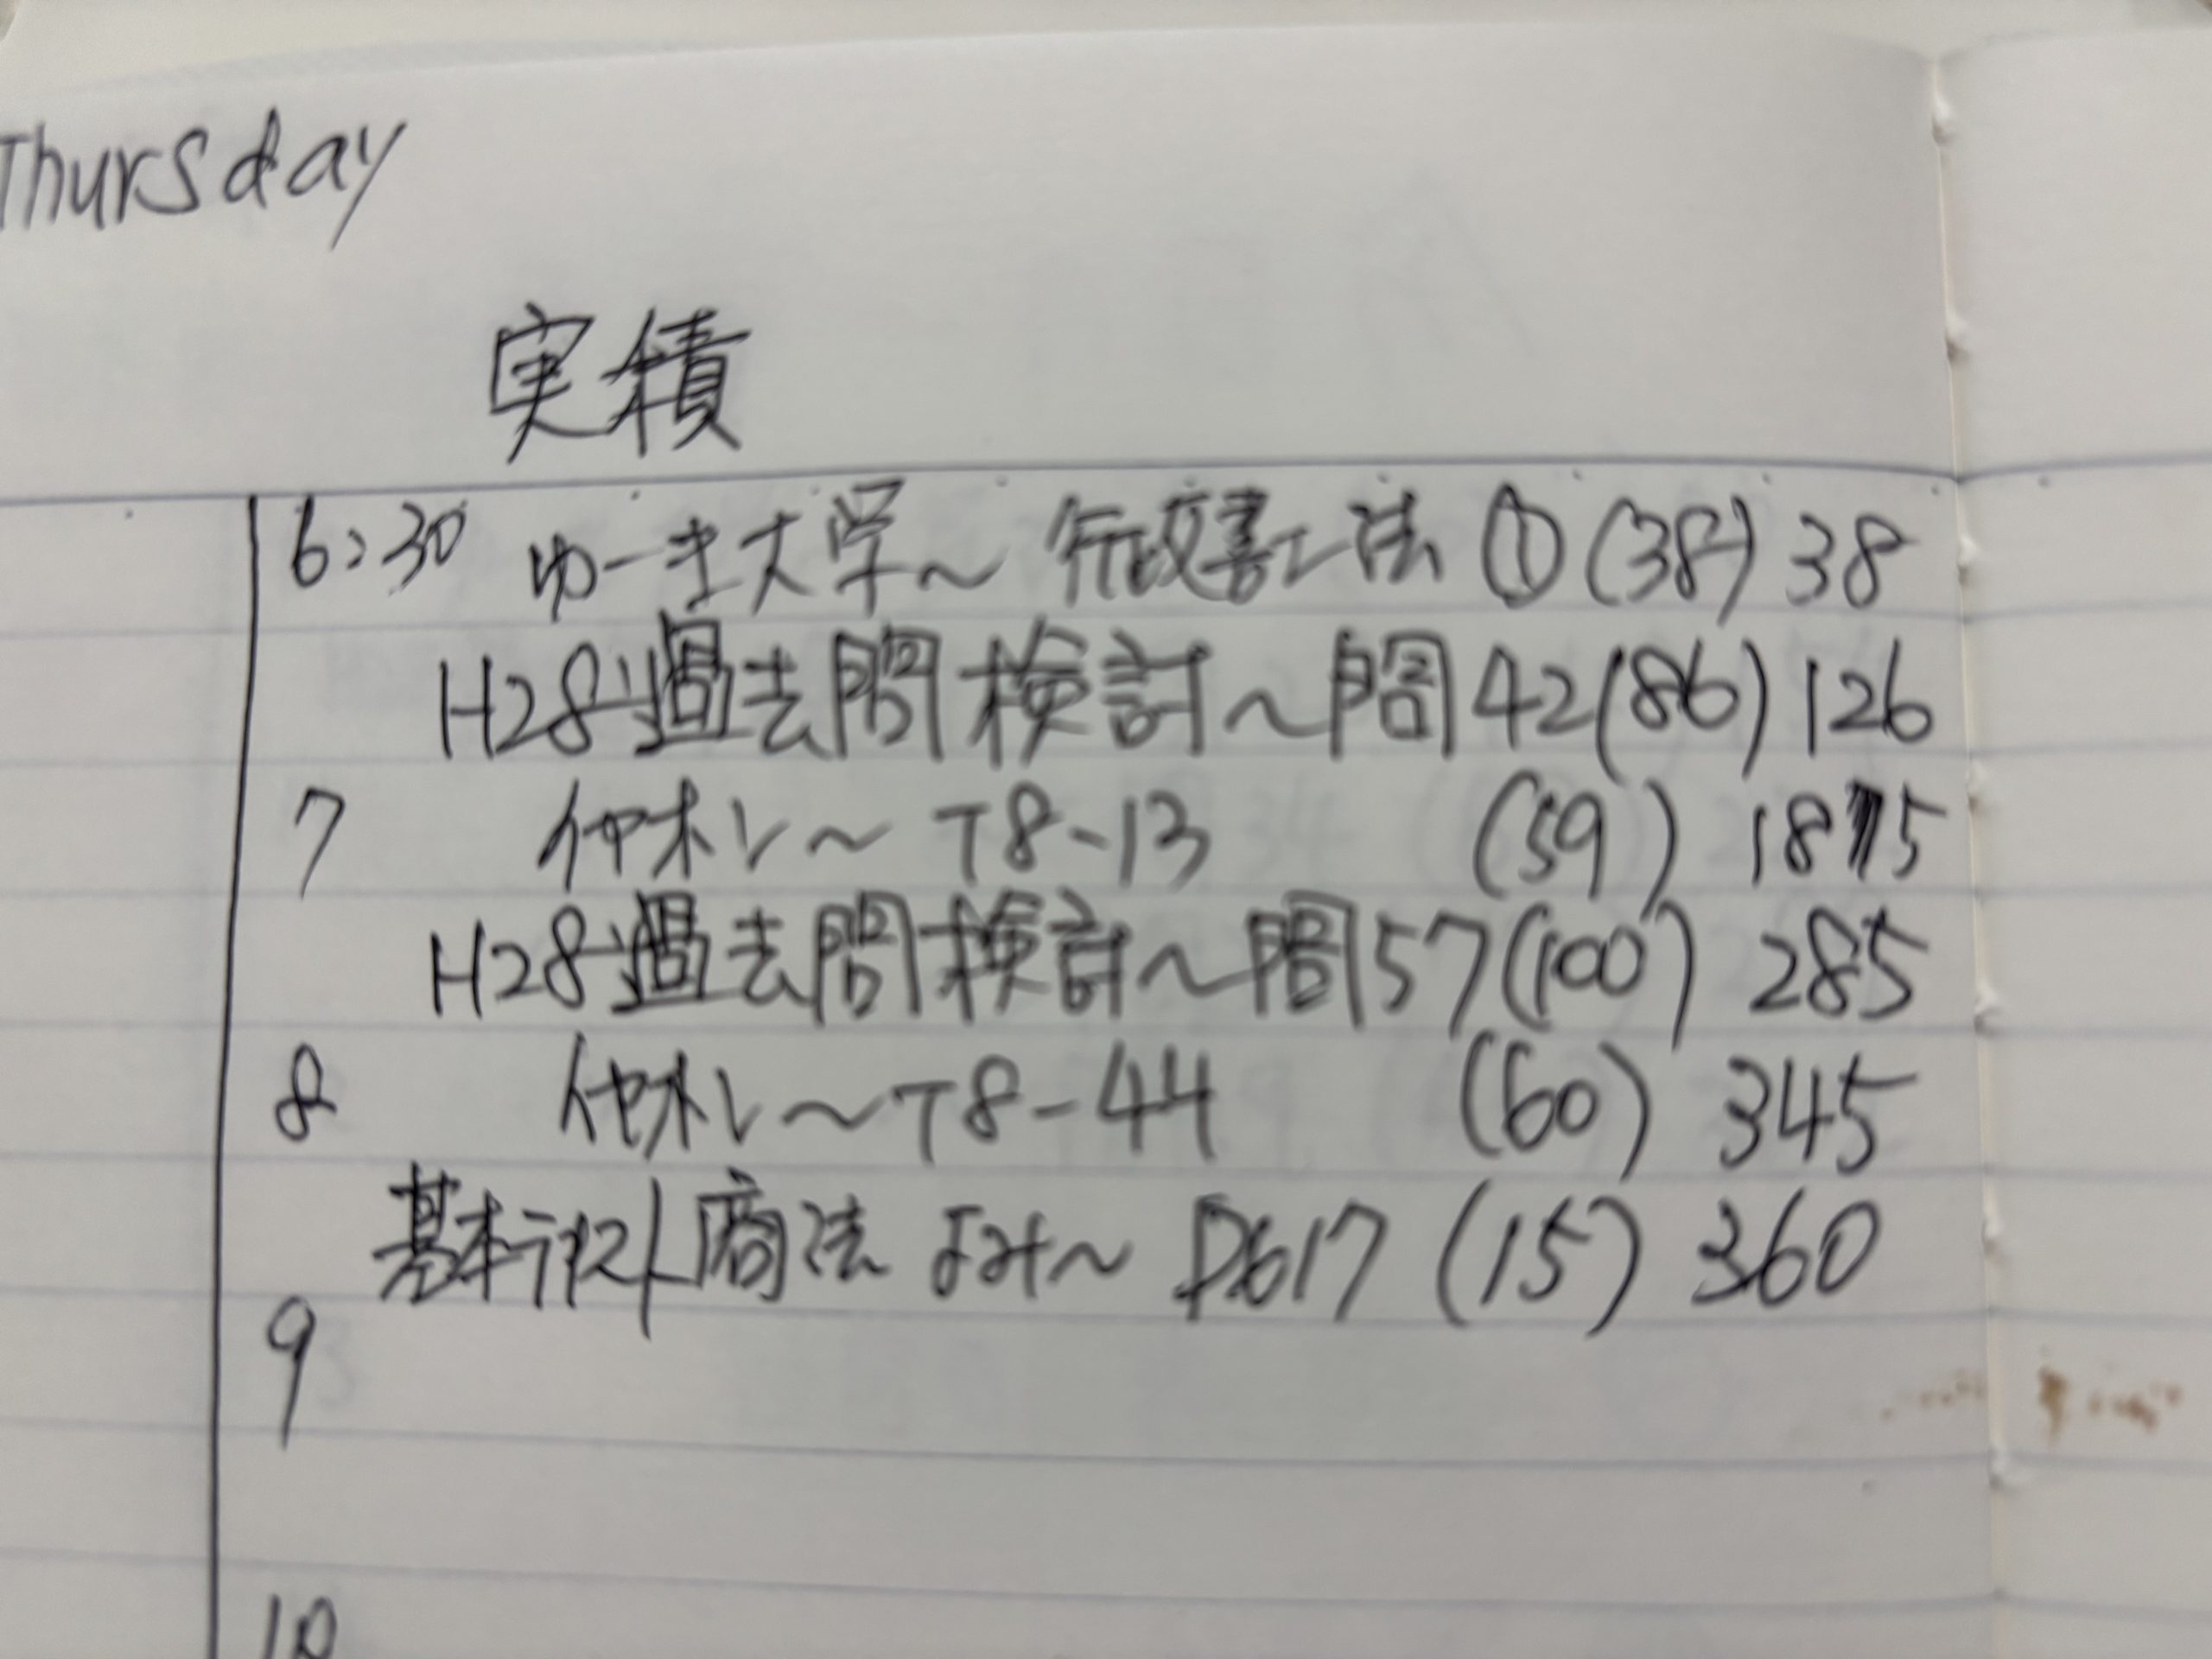 Thursday
実績
6:30 ゆーき大学〜行政書士法 ① (38) 38
H28過去問検討〜問42(86) 126
7 〜T8-13 (59) 185
H28過去問検討〜問57(100) 285
8 〜T8-44 (60) 345
基本テキスト商法 よみ〜P617 (15) 360
9
10